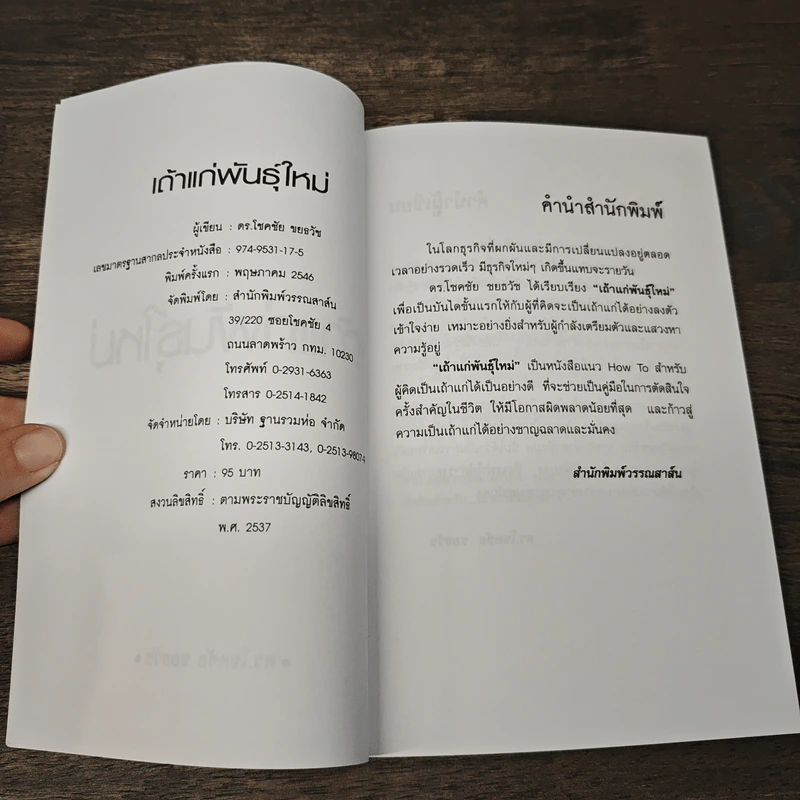 เถ้าแก่พันธุ์ใหม่
ผู้เขียน : ดร.โชคชัย ชยธวัช
เลขมาตรฐานสากลประจำหนังสือ : 974-9531-17-5
พิมพ์ครั้งแรก : พฤษภาคม 2546
จัดพิมพ์โดย : สำนักพิมพ์วรรณสาส์น
39/220 ซอยโชคชัย 4
ถนนลาดพร้าว กทม. 10230
โทรศัพท์ 0-2931-6363
โทรสาร 0-2514-1842
จัดจำหน่ายโดย : บริษัท ฐานรวมห่อ จำกัด
โทร. 0-2513-3143, 0-2513-9807-9
ราคา : 95 บาท
สงวนลิขสิทธิ์ : ตามพระราชบัญญัติลิขสิทธิ์
พ.ศ. 2537
คำนำสำนักพิมพ์
ในโลกธุรกิจที่ผกผันและมีการเปลี่ยนแปลงอยู่ตลอด
เวลาอย่างรวดเร็ว มีธุรกิจใหม่ๆ เกิดขึ้นแทบจะรายวัน
ดร.โชคชัย ชยธวัช ได้เรียบเรียง "เถ้าแก่พันธุ์ใหม่"
เพื่อเป็นบันไดขั้นแรกให้กับผู้ที่คิดจะเป็นเถ้าแก่ได้อย่างลงตัว
เข้าใจง่าย เหมาะอย่างยิ่งสำหรับผู้กำลังเตรียมตัวและแสวงหา
ความรู้อยู่
"เถ้าแก่พันธุ์ใหม่" เป็นหนังสือแนว How To สำหรับ
ผู้คิดเป็นเถ้าแก่ได้เป็นอย่างดี ที่จะช่วยเป็นคู่มือในการตัดสินใจ
ครั้งสำคัญในชีวิต ให้มีโอกาสผิดพลาดน้อยที่สุด และก้าวสู่
ความเป็นเถ้าแก่ได้อย่างชาญฉลาดและมั่นคง
สำนักพิมพ์วรรณสาส์น